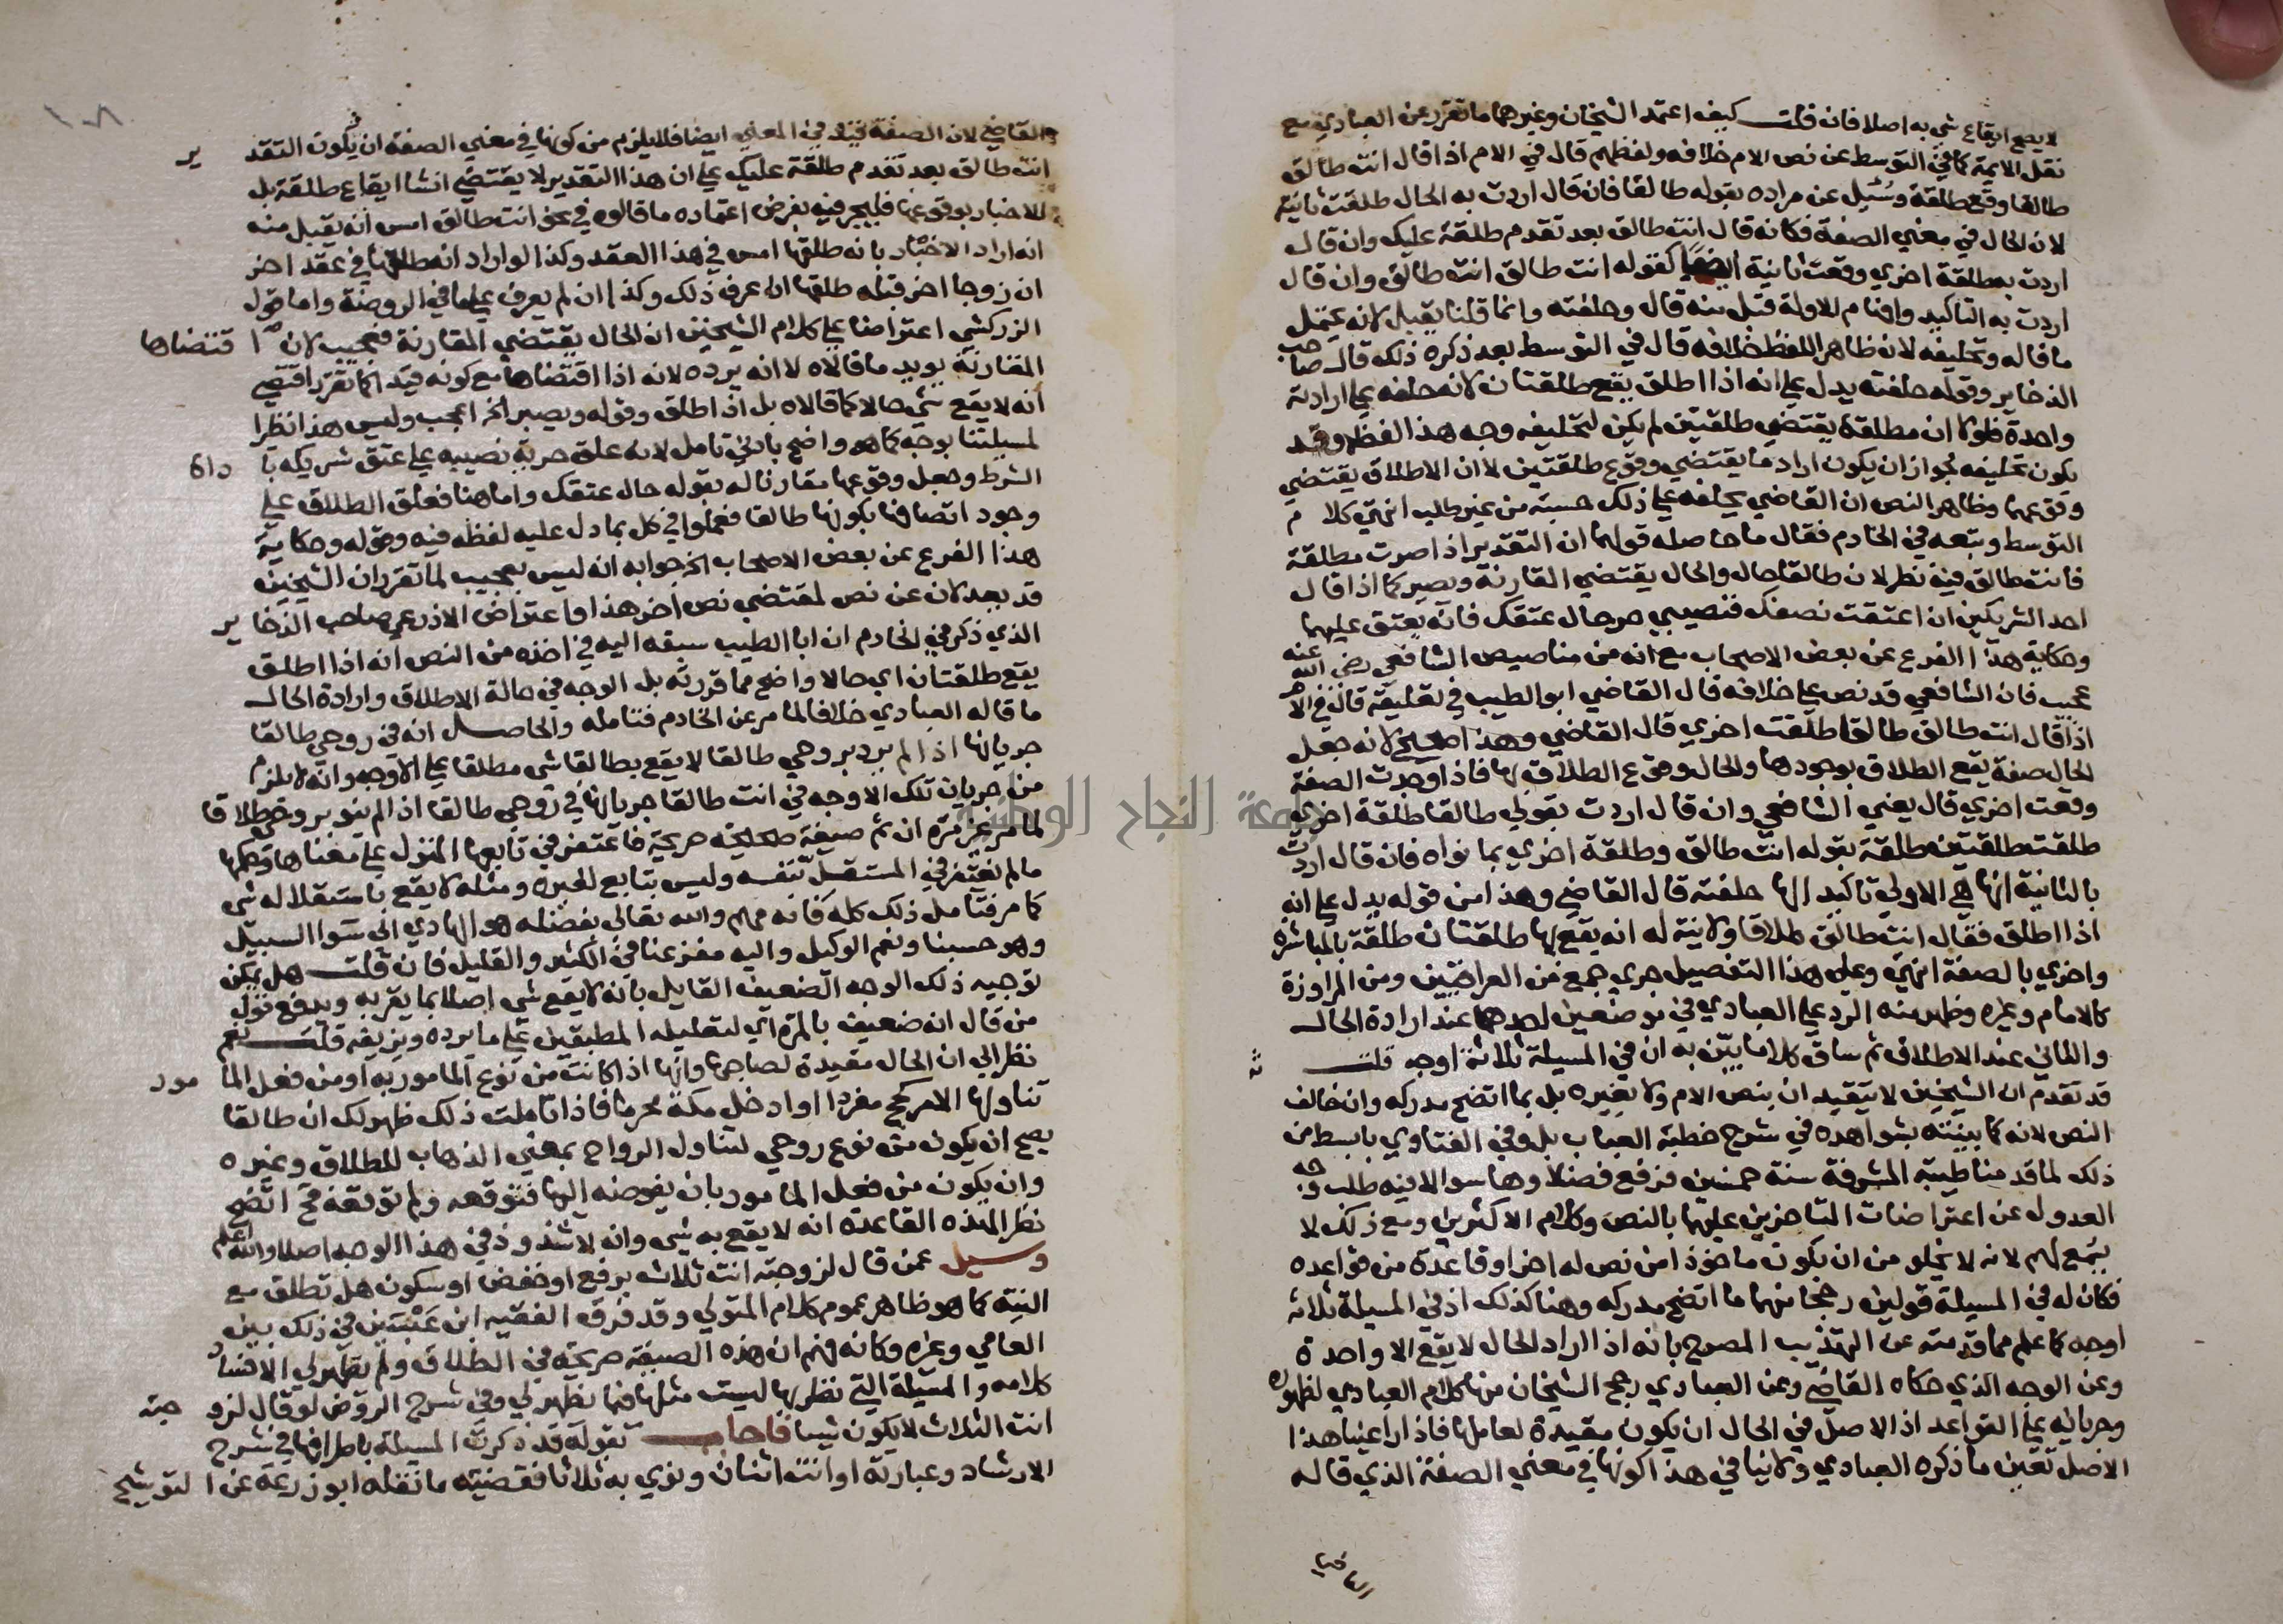 لا يصح ايقاع شي به اصلا فان قلت كيف اعتمد الشيخان وغيرهما ما تقرر عن العبادي مع
نقل الايمة كما في التوسط عن نص الام خلافه ولفظهم قال في الام اذا قال انت طالق
طالقا وقع طلقة وسُئِل عن مراده بقوله طالقا فان قال اردت به الحال طلقت ثانية
لان الحال في معني الصفة فكانه قال انت طالق بعد تقدم طلقة عليك وان قال
اردت به طلقة اخري وقعت ثانية ايضا كقوله انت طالق انت طالق وان قال
اردت به التاكيد وافهام الاولة قبل منه قال وحلفته وانما قلنا يقبل لانه يحتمل
ما قاله وتحليفه لان ظاهر اللفظ خلافه قال في التوسط بعد ذكره ذلك قال صاحب
الذخاير وقوله حلفته يدل علي انه اذا اطلق يقع طلقتان لانه حلفه علي ارادته
واحدة فلو كان مطلقه يقتضي طلقتين لم يكن لتحليفه وجه هذا لفظه وقد
يكون تحليفه لجواز ان يكون اراد ما يقتضي وقوع طلقتين لا ان الاطلاق يقتضي
وقوعهما وظاهر النص ان القاضي يحلفه علي ذلك حسبة من غير طلب انتهي كلام
التوسط وتبعه في الخادم فقال ما حاصله قولهما ان التقدير اذا صرت مطلقة
فانت طالق فيه نظر لان طالقا حال والحال يقتضي المقارنة ويصير كما اذا قال
احد الشريكين ان اعتقت نصفك فنصيبي حر حال عتقك فانه يعتق عليهما
وحكاية هذا الفرع عن بعض الاصحاب مع انه من مناصيص الشافعي رضي الله عنه
عجيب فان الشافعي قد نص علي خلافه قال القاضي ابو الطيب في تعليقه قال في الام
اذا قال انت طالق طالقا طلقت اخري قال القاضي وهذا صحيح لانه جعل
الحال صفة يقع الطلاق بوجودها والحال وقوع الطلاق بها فاذا وجدت الصفة
وقعت اخري قال يعني الشافعي وان قال اردت بقولي طالقا طلقة اخري
طلقت طلقتين طلقة بقوله انت طالق وطلقة اخري بما نواه فان قال اردت
بالثانية انها هي الاولي تاكيد لها حلفته قال القاضي وهذا من قوله يدل علي انه
اذا اطلق فقال انت طالق طلاقا ولا نية له انه يقع بها طلقتان طلقة بالمباشرة
واخري بالصفة انتهي وعلي هذا التفصيل جري جمع من العراقيين ومن المراوزة
كالامام وغيره وظهر منه الرد علي العبادي في موضعين احدهما عند ارادة الحال
والثاني عند الاطلاق ثم ساق كلاما بيّن به ان في المسيلة ثلاثة اوجه قلت
قد تقدم ان الشيخين لا يتقيد ان بنص الام ولا بغيره بل بما اتضح مدركه وان خالف
النص لانه كما بينته بشواهده في شرح خطبة العباب بل وفي الفتاوي بابسط من
ذلك لما قدمنا طيبة المشرفة سنة خمسين فرفع فضلاوها سوالا فيه طلب وجه
العدول عن اعتراضات المتاخرين عليهما بالنص وكلام الاكثرين ومع ذلك لا
يتبع لهم لانه لا يخلو من ان يكون ماخوذ امن نص له اخر او قاعدة من قواعده
فكان له في المسيلة قولين رجحا منهما ما اتضح مدركه وهنا كذلك اذ في المسيلة ثلاثة
اوجه كما علم مما قدمته عن التهذيب المصرح بانه اذا اراد الحال لا يقع الا واحدة
وعن الوجه الذي حكاه القاضي وعن العبادي رجح الشيخان منها كلام العبادي لظهوره
وجريانه علي القواعد اذ الاصل في الحال ان يكون مقيدة لعاملها فاذا راعينا هذا
الاصل تعين ما ذكره العبادي ولا ينافي هذا كونها في معني الصفة الذي قاله
القاضي لان الصفة قيد في المعني ايضا فلا يلزم من كونها في معني الصفة ان يكون التقدير
انت طالق بعد تقدم طلقة عليك علي ان هذا التقدير لا يقتضي انشا ايقاع طلقة بل
الاخبار بوقوعها فليجر فيه بفرض اعتماده ما قالوه في نحو انت طالق امس انه يقبل منه
انه اراد الاخبار بانه طلقها امس في هذا العقد وكذا لو اراد انه طلقها في عقد اخر
ان زوجا اخر قبله طلقها ان عرف ذلك وكذا ان لم يعرف علي ما في الروضة واما قول
الزركشي اعتراضا علي كلام الشيخين ان الحال يقتضي المقارنة فعجيب لان اقتضاها
المقارنة يويد ما قالاه لا انه يرده لانه اذا اقتضاها مع كونه قيدا كما تقرر اقتضي
انه لا يقع شي حالا كما قالاه بل اذا طلق وقوله ويصير الخ اعجب وليس هذا نظرا
لمسيلتنا بوجه كما هو واضح بادني تامل لانه علق حرية نصيبه علي عتق شريكه باداة
الشرط وجعل وقوعها مقارنا له بقوله حال عتقك واما هنا فعلق الطلاق علي
وجود اتصافها بكونها طالقا فعملوا في كل بما دل عليه لفظه فيه وقوله وحكاية
هذا الفرع عن بعض الاصحاب الخ جوابه انه ليس بعجيب لما تقرر ان الشيخين
قد يعدلان عن نص لمقتضي نص اخر هذا واعتراض الاذرعي صاحب الذخاير
الذي ذكر في الخادم ان ابا الطيب سبقه اليه في اخذه من النص انه اذا اطلق
يقع طلقتان اي حالا واضح مما قررته بل الوجه في حالة الاطلاق وارادة الحال
ما قاله العبادي خلافا لما مر عن الخادم فتامله والحاصل انه في روحي طالقا
جريانها اذا لم يرد بروحي طالقا لا يقع بطالقا شي مطلقا علي الاوجه وانه لا يلزم
من جريان تلك الاوجه في انت طالقا جريانها في روحي طالقا اذا لم ينو بروحي طلاقا
لما مر غير مرة ان ثم صيغة صحيحة صريحة فاغتفر في تابعها المنزل علي معناها وحكمها
ما لم يغتفر في المستقل بنفسه وليس بتابع لغيره ومثله لا يقع باستقلاله شي
كما مر فتامل ذلك كله فانه مهم والله تعالي بفضله هو الهادي الي سوا السبيل
وهو حسبنا ونعم الوكيل واليه مفزعنا في الكثير والقليل فان قلت هل يمكن
توجيه ذلك الوجه الضعيف القايل بانه لا يقع شي اصلا بما يقربه ويدفع قول
من قال انه ضعيف بالمرة اي لتعليله المطبقين علي ما يرده ويزيفه قلت نعم
نظرا الي ان الحال مقيدة لصاحبها وانها اذا كانت من نوع المامور به او من فعل المامور
تناولها الامر كحج مفردا او ادخل مكة محرما فاذا تاملت ذلك ظهر لك ان طالقا
يصح ان يكون من نوع روحي لتناول الرواح بمعني الذهاب للطلاق وغيره
وان يكون من فعل المامور بان يفوضه اليها فتوقعه ولم توقعه فح اتضح
نظرا لهذه القاعدة انه لا يقع به شي وانه لا شذوذ في هذا الوجه اصلا والله اعلم
وسيل عمن قال لزوجته انت ثلاث برفع او خفض او سكون هل تطلق مع
النية كما هو ظاهر عموم كلام المتولي وقد فرق الفقيه ابن عَبْسَين في ذلك بين
العامي وغيره وكانه فهم ان هذه الصيغة صريحة في الطلاق ولم يظهر لي الا فساد
كلامه والمسيلة التي نظر بها ليست مثلها فيما يظهر لي وفي شرح الروض لو قال لزوجته
انت الثلاث لا يكون شيا فاجاب بقوله قد ذكرت المسيلة باطرافها في شرح
الارشاد وعبارته او انت اثنان ونوي به ثلاثا فقضيته ما نقله ابو زرعة عن التوشيح
جامعة النجاح الوطنية